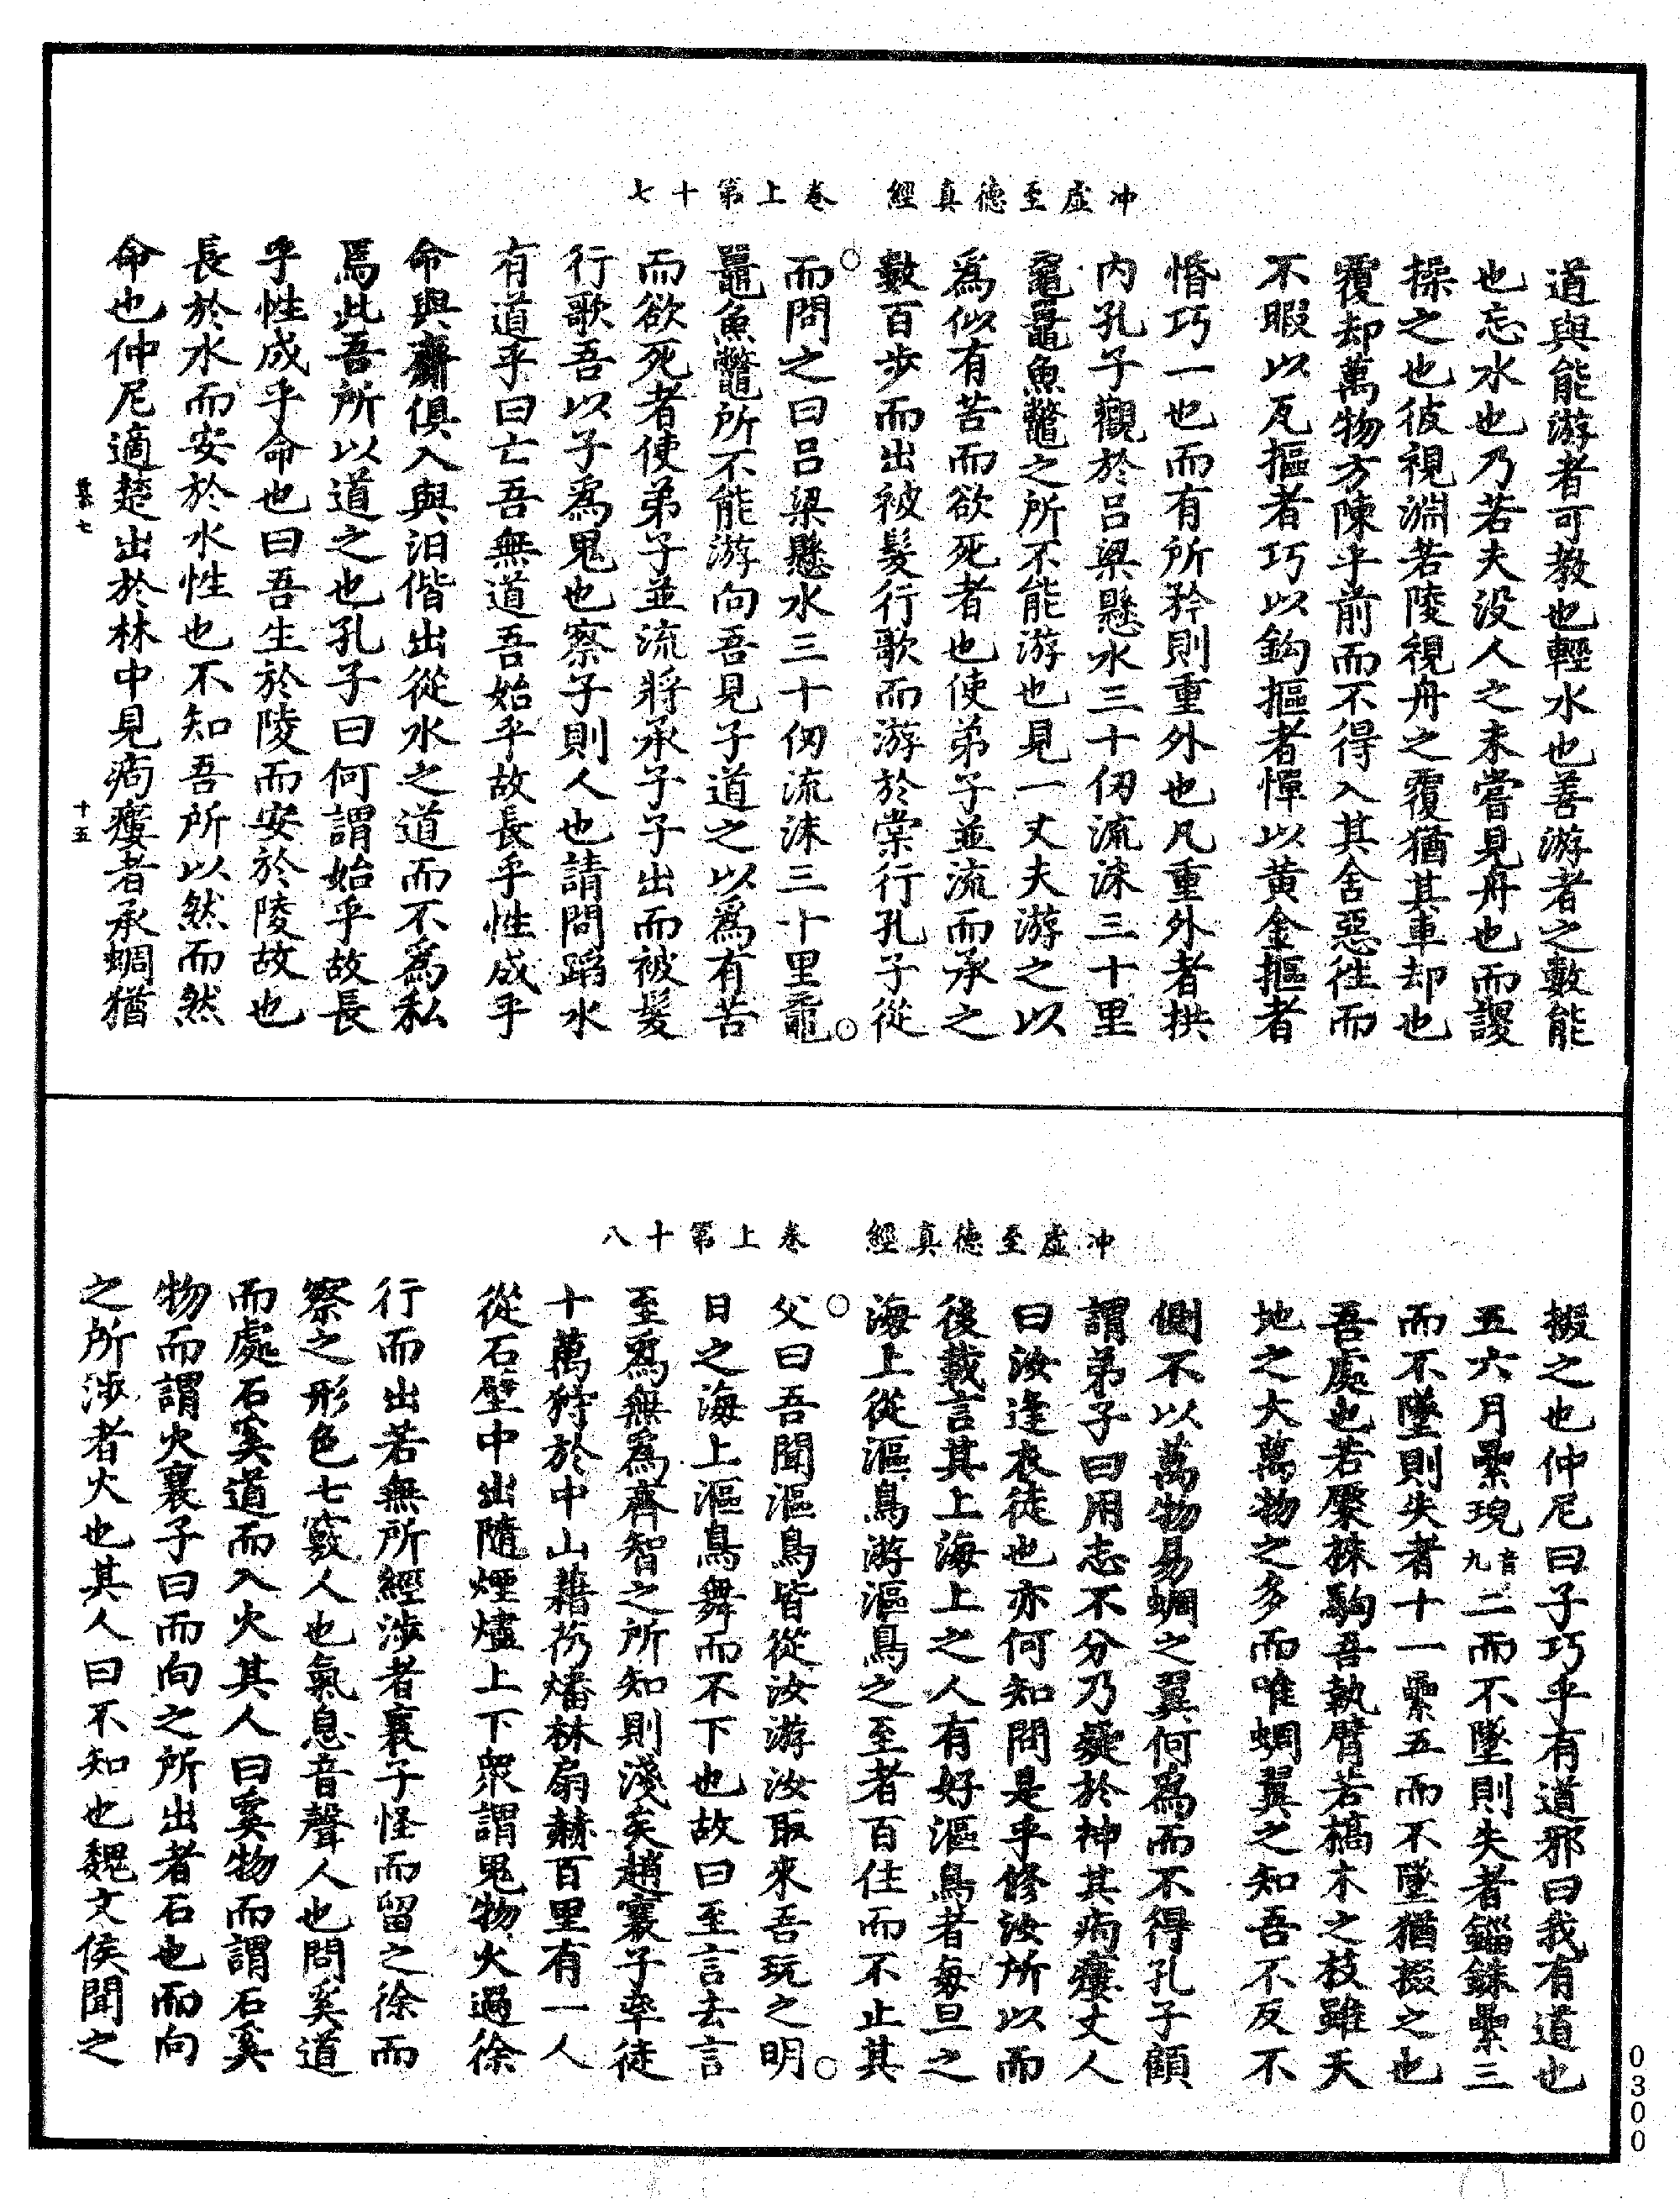 冲虛至德真經　卷上第十七
道與能游者可教也輕水也善游者之數能
也忘水也乃若夫没人之未嘗見舟也而謖
操之也彼視淵若陵視舟之覆猶其車却也
覆却萬物方陳乎前而不得入其舍惡往而
不暇以瓦摳者巧以鈎摳者憚以黄金摳者
惛巧一也而有所矜則重外也凡重外者拱
内孔子觀於吕梁懸水三十仞流沫三十里
黿鼉魚鼈之所不能游也見一丈夫游之以
爲似有苦而欲死者也使弟子並流而承之
數百步而出被髮行歌而游於棠行孔子從
而問之曰吕梁懸水三十仞流沫三十里黿
鼉魚鼈所不能游向吾見子道之以爲有苦
而欲死者使弟子並流將承子子出而被髮
行歌吾以子爲鬼也察子則人也請問蹈水
有道乎曰亡吾無道吾始乎故長乎性成乎
命與齎俱入與汨偕出從水之道而不爲私
焉此吾所以道之也孔子曰何謂始乎故長
乎性成乎命也曰吾生於陵而安於陵故也
長於水而安於水性也不知吾所以然而然
命也仲尼適楚出於林中見痀瘻者承蜩猶
七
十五
冲虛至德真經　卷上第十八
掇之也仲尼曰子巧乎有道邪曰我有道也
五六月纍垸音丸二而不墜則失者錙銖纍三
而不墜則失者十一纍五而不墜猶掇之也
吾處也若橜株駒吾執臂若槁木之枝雖天
地之大萬物之多而唯蜩翼之知吾不反不
側不以萬物易蜩之翼何爲而不得孔子顧
謂弟子曰用志不分乃疑於神其痀瘻丈人
曰汝逢衣徒也亦何知問是乎修汝所以而
後載言其上海上之人有好漚鳥者每旦之
海上從漚鳥游漚鳥之至者百住而不止其
父曰吾聞漚鳥皆從汝游汝取來吾玩之明
日之海上漚鳥舞而不下也故曰至言去言
至爲無爲齊智之所知則淺矣趙襄子率徒
十萬狩於中山藉芿燔林扇赫百里有一人
從石壁中出隨煙燼上下衆謂鬼物火過徐
行而出若無所經涉者襄子怪而留之徐而
察之形色七竅人也氣息音聲人也問奚道
而處石奚道而入火其人曰奚物而謂石奚
物而謂火襄子曰而向之所出者石也而向
之所涉者火也其人曰不知也魏文侯聞之
0300